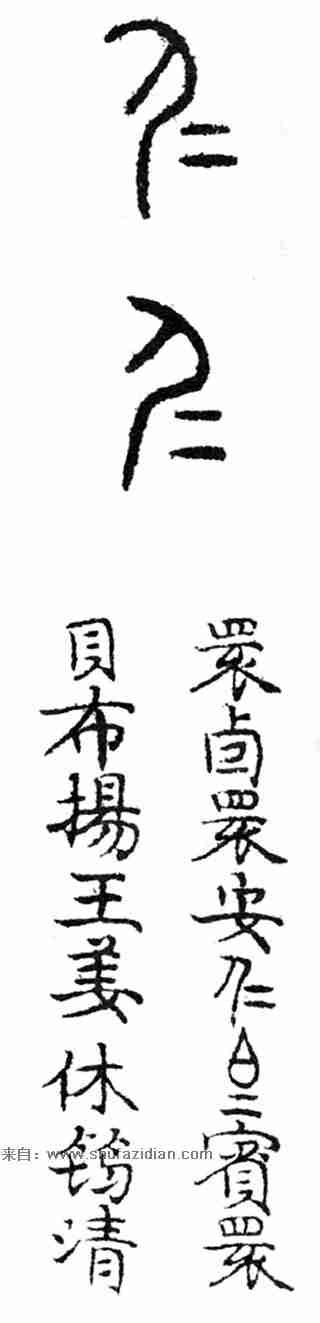 睘卣睘安尸二白二賓睘
貝布揚王姜休筠清
来自：www.shufazidian.com